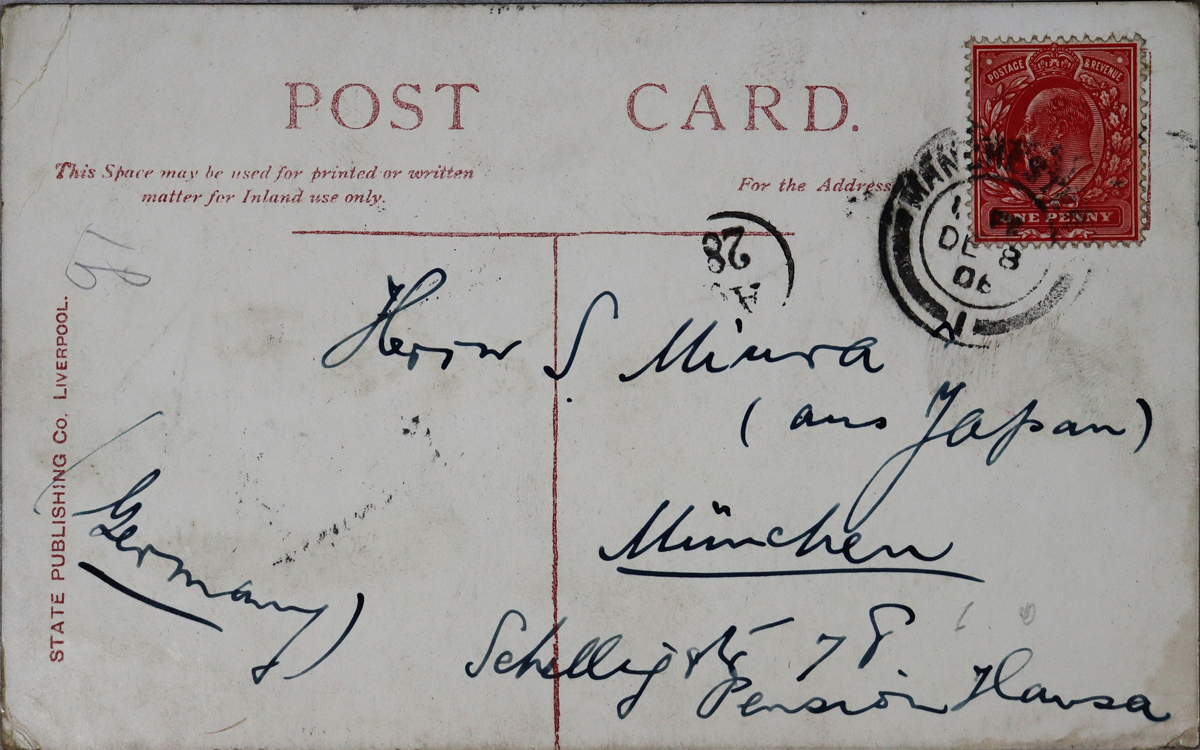 POST CARD.
This Space may be used for printed or written
matter for Inland use only.
For the Address
POSTAGE & REVENUE
ONE PENNY
MANCHESTER
DE 8
06
28
Herrn S Miura
(aus Japan)
München
Schellingstr 78.
Pension Hansa
Germany)
STATE PUBLISHING Co. LIVERPOOL.